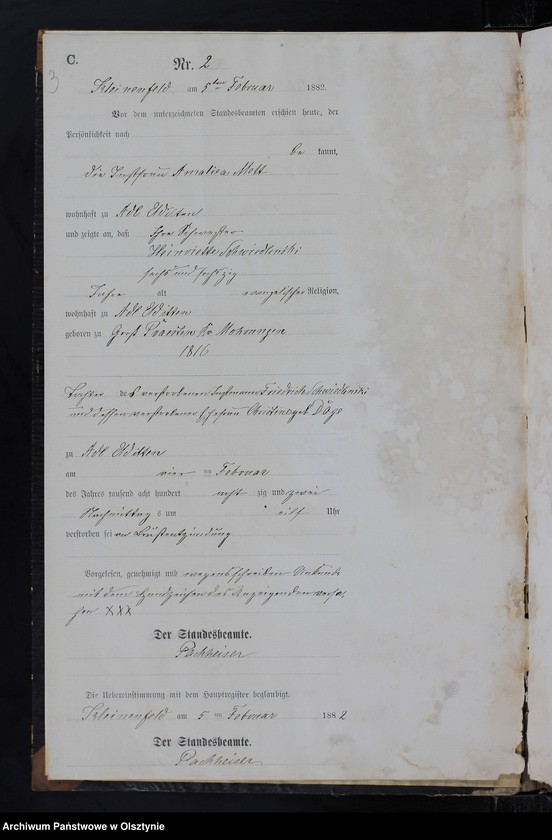 C.
Nr. 2
3
Kleinenfeld am 5ten Februar 1882.
Vor dem unterzeichneten Standesbeamten erschien heute, der
Persönlichkeit nach
be kannt,
die Instfrau Amalica Mott
wohnhaft zu Adl Elditten
und zeigte an, daß Ihre Schwester
Heinriette Schwiedlinski
sechs und sechszig
Jahre alt evangelischer Religion,
wohnhaft zu Adl Elditten
geboren zu Groß Kr. Mohrungen
1816
Tochter des verstorbenen Instmann Friedrich Schwidlinski
und dessen verstorbener Ehefrau geb
zu Adl Elditten
am vier ten Februar
des Jahres tausend acht hundert acht zig und zwei
Nachmittag s um elf Uhr
verstorben sei
Vorgelesen, genehmigt und wegen schreiben Unkunde
mit dem Handzeichen des Anzeigenden verse,
hen XXX
Der Standesbeamte.
Packheiser
Die Uebereinstimmung mit dem Hauptregister beglaubigt.
Kleinenfeld am 5 ten Februar 1882
Der Standesbeamte.
Packheiser
Archiwum Państwowe w Olsztynie